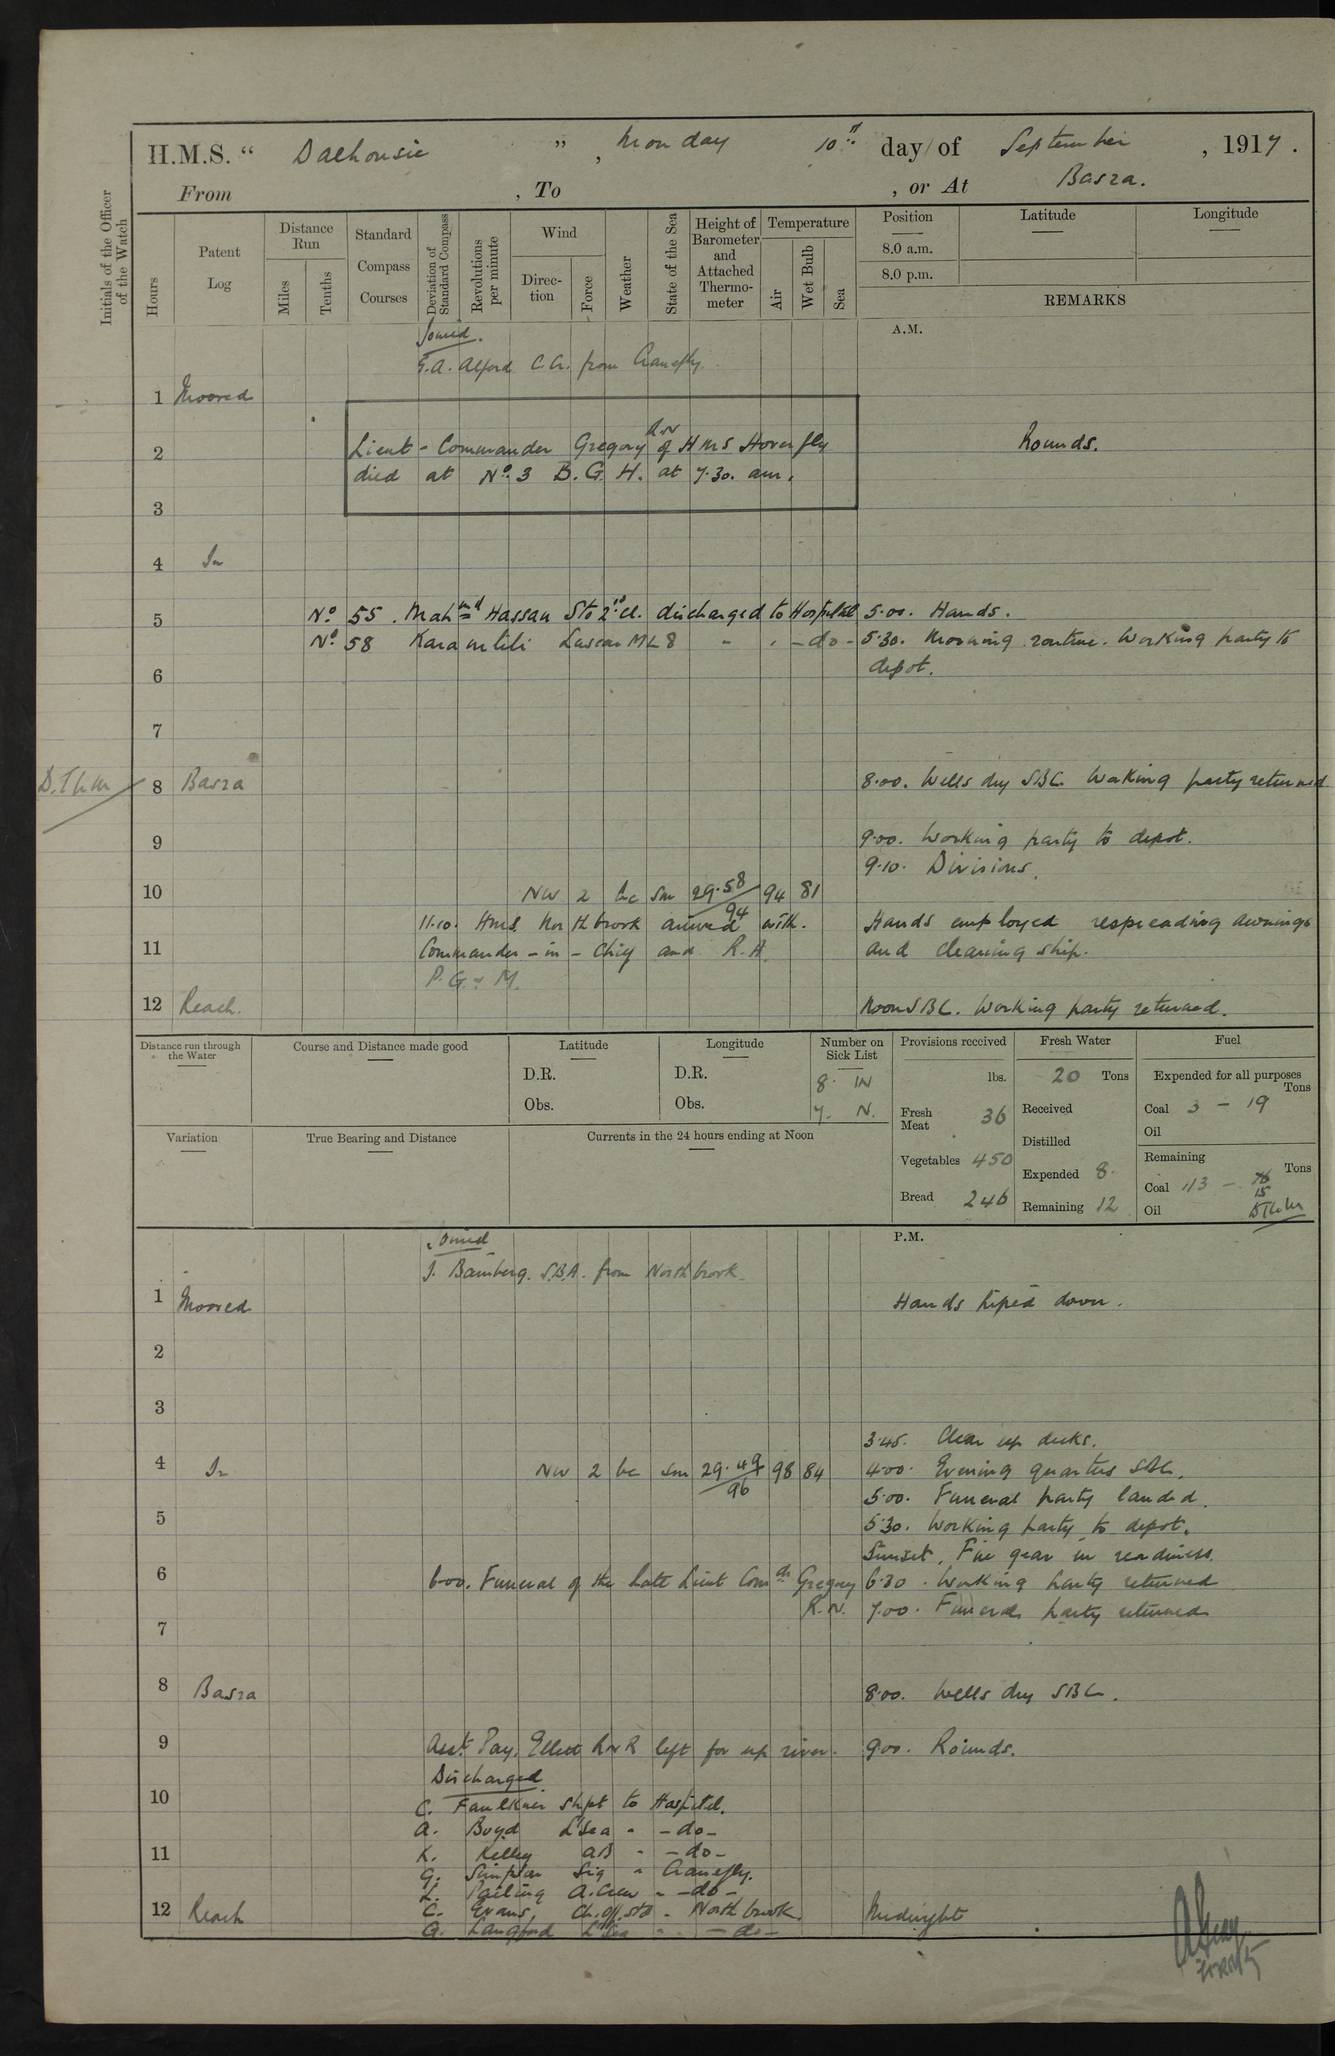 H.M.S. “ Dalhousie ”, Monday 10th day of September, 1917.
From , To , or At Basra.
Initials of the Officer of the Watch
Hours
Patent Log
Distance Run
Miles
Tenths
Standard Compass Courses
Deviation of Standard Compass
Revolutions per minute
Wind
Direction
Force
Weather
State of the Sea
Height of Barometer and Attached Thermometer
Temperature
Air
Wet Bulb
Sea
Position
8.0 a.m.
8.0 p.m.
Latitude
Longitude
REMARKS
A.M.
Joined.
G.A. Alford C.A. from Cranefly.
1 Moored
2 Lieut-Commander Gregory RN of HMS Hoverfly Rounds.
died at No. 3 B.G.H. at 7.30. am.
3
4 In
5 No. 55. Mahmd Hassan Sto 2nd cl. discharged to Hospital 5.00. Hands.
No. 58 Lascar ML 8 " " -do- 5.30. Morning routine. Working party to
6 depot.
7
8 Basra 8.00. Wells dry SBC Working party returned
9 9.00. Working party to depot.
9.10. Divisions.
10 NW 2 bc Sm 29.58/94 94 81
11.10. HMS Northbrook arrived with. Hands employed respreading awnings
11 Commander-in-Chief and R.A. and cleaning ship.
P.G. & M.
12 Reach. Noon SBC. Working party returned.
Distance run through the Water
Course and Distance made good
Latitude
D.R.
Obs.
Longitude
D.R.
Obs.
Number on Sick List
8. IN
7. N.
Provisions received
lbs.
Fresh Meat 36
Vegetables 450
Bread 246
Fresh Water
20 Tons
Received
Distilled
Expended 8.
Remaining 12
Fuel
Expended for all purposes
Tons
Coal 3 - 19
Oil
Remaining
Tons
Coal 113 - 15
Oil
Variation
True Bearing and Distance
Currents in the 24 hours ending at Noon
P.M.
Joined
J. Bamberg. S.B.A. from Northbrook.
1 Moored Hands piped down.
2
3
3.45. Clear up decks.
4 In NW 2 bc Sm 29.49/96 98 84 4.00. Evening quarters SBC.
5.00. Funeral party landed.
5 5.30. Working party to depot.
Sunset. Fire gear in readiness.
6 6.00. Funeral of the late Lieut Comdr Gregory 6.30. Working party returned
R.N. 7.00. Funeral party returned
7
8 Basra 8.00. Wells dry SBC.
9 Asst. Pay. Elliott RNR left for up river. 9.00. Rounds.
Discharged.
10 C. Faulkner Shpt to Hospital.
A. Boyd L Sea " -do-
11 K. Kelley AB " -do-
G. Simpson Sig " Cranefly.
L. Pailing A. Crew " -do-
12 Reach C. Evans, Ch. off. Std " Northbrook. Midnight
G. Langford L Sea " -do-